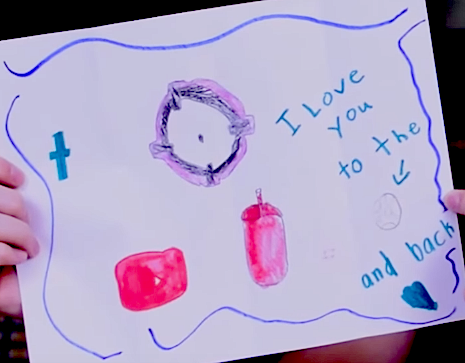 I Love
you
to the
and back